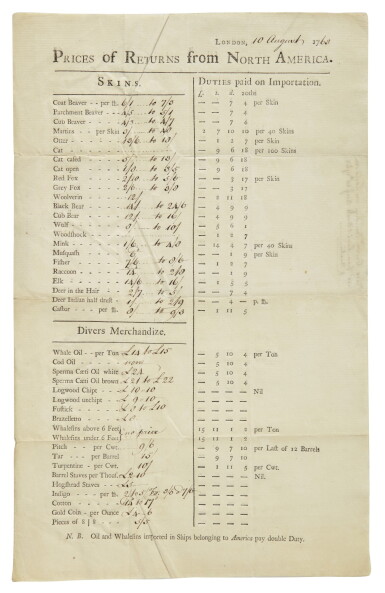 London, 10 August, 1763
Prices of Returns from North America.
Skins.
Duties paid on Importation.
£. s. d. 20ths
Coat Beaver - - per ℔. 6/1 to 7/3 — — 7 4 per Skin
Parchment Beaver to — — 7 4
Cub Beaver 4/3 to 4/7 — — 7 4
Martins - - per Skin to 2 7 10 10 per 40 Skins
Otter to — 1 2 7 per Skin
Cat — 9 6 18 per 100 Skins
Cat cased to — 9 6 18
Cat open to — 9 6 18
Red Fox 2/10 to 3/6 — — 3 17 per Skin
Grey Fox 2/6 to — — 3 17
Wolverin 12/ — 2 11 18
Black Bear to 24/6 — 4 9 9
Cub Bear 12/ to 16/ — 4 9 9
Wolf 9/ to 10/ — 5 6 1
Woodshock — 1 2 7
Mink 1/6 to 4/9 — 12 4 7 per 40 Skins
Musquash — — 1 9 per Skin
Fisher 7/6 to — 1 2 7
Raccoon to 2/9 — — 1 9
Elk 14/6 to 16/ — 1 5 5
Deer in the Hair to — — 7 4
Deer Indian half drest to 2/9 — — 4 — p. ℔.
Castor - - per ℔. 9/ to 9/3 — 1 11 5
Divers Merchandize.
Whale Oil - - per Ton £14 to £15 — 5 10 4 per Ton
Cod Oil none — 5 10 4
Sperma Cœti Oil white £24 — 5 10 4
Sperma Cœti Oil brown £21 to £22 — 5 10 4
Logwood Chipt £10-10 — — — — Nil
Logwood unchipt £9-10 — — — —
Fustick £9 to £10 — — — —
Braziletto — — — —
Whalefins above 6 Feet no price 15 11 1 2 per Ton
Whalefins under 6 Feet 15 11 1 2
Pitch - - per Cwt. 9/6 — 9 7 10 per Last of 12 Barrels
Tar - - per Barrel 15 — 9 7 10
Turpentine - per Cwt. 10/ — 1 11 5 per Cwt.
Barrel Staves per Thous. — — — — Nil.
Hogshead Staves — — — —
Indigo - - per ℔. — — — —
Cotton — — — —
Gold Coin - per Ounce — — — —
Pieces of 8|8 — — — —
N. B. Oil and Whalefins imported in Ships belonging to America pay double Duty.